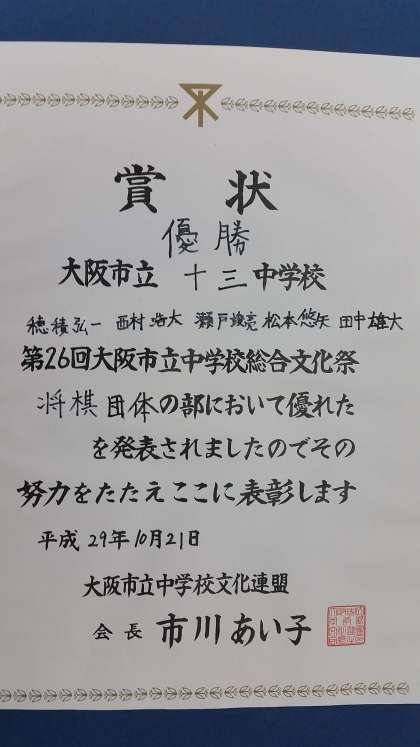 賞状
優勝
大阪市立 十三中学校
穂積弘一 西村 大 瀬戸 亮 松本悠矢 田中雄大
第26回大阪市立中学校総合文化祭
将棋団体の部において優れた
を発表されましたのでその
努力をたたえここに表彰します
平成 29年10月21日
大阪市立中学校文化連盟
会長 市川あい子